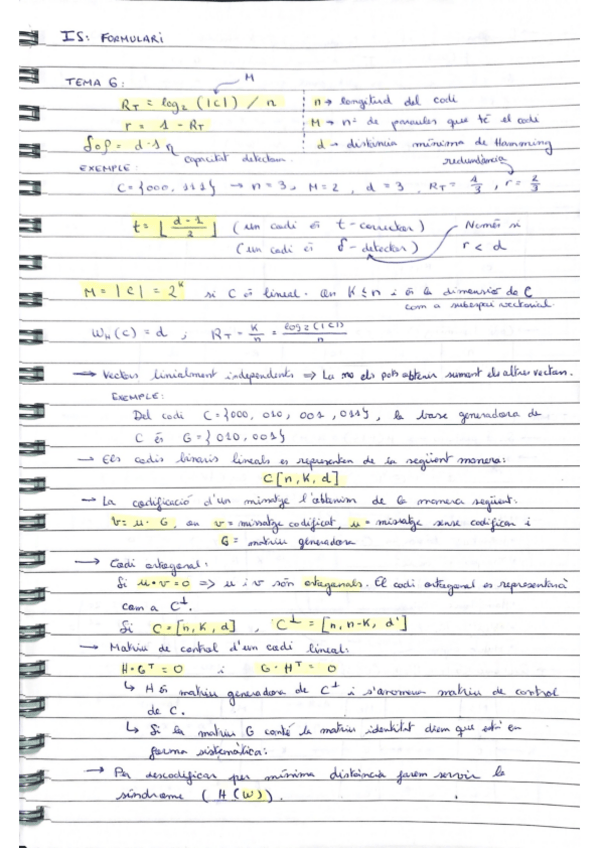 IS: FORMULARI
TEMA 6:
M
R_T = log₂ (|C|) / n
n → longitud del codi
r = 1 - R_T
M → nº de paraules que té el codi
δ = d-1
capacitat detectora
d → distància mínima de Hamming
EXEMPLE:
redundància
C = {000, 111} → n=3, M=2, d=3, R_T = 1/3, r = 2/3
t = ⌊ d-1 / 2 ⌋ (un codi és t-corrector)
Només si
(un codi és δ-detector)
r < d
M = |C| = 2^K si C és lineal. On K ≤ n i és la dimensió de C
com a subespai vectorial.
W_H(C) = d ; R_T = K/n = log₂(|C|)/n
→ Vectors linialment independents ⇒ La no els pots obtenir sumant els altres vectors.
EXEMPLE:
Del codi C = {000, 010, 001, 011}, la base generadora de
C és G = {010, 001}
→ Els codis binaris lineals es representen de la següent manera:
C[n, K, d]
→ La codificació d'un missatge l'obtenim de la manera següent:
v = u · G, on v = missatge codificat, u = missatge sense codificar i
G = matriu generadora
→ Codi ortogonal:
Si u·v = 0 ⇒ u i v són ortogonals. El codi ortogonal es representarà
com a C⊥.
Si C = [n, K, d] , C⊥ = [n, n-K, d']
→ Matriu de control d'un codi lineal:
H·Gᵀ = 0 i G·Hᵀ = 0
↳ H és matriu generadora de C⊥ i s'anomena matriu de control
de C.
↳ Si la matriu G conté la matriu identitat diem que està en
forma sistemàtica.
→ Per descodificar per mínima distància farem servir la
síndrome (H(W)).